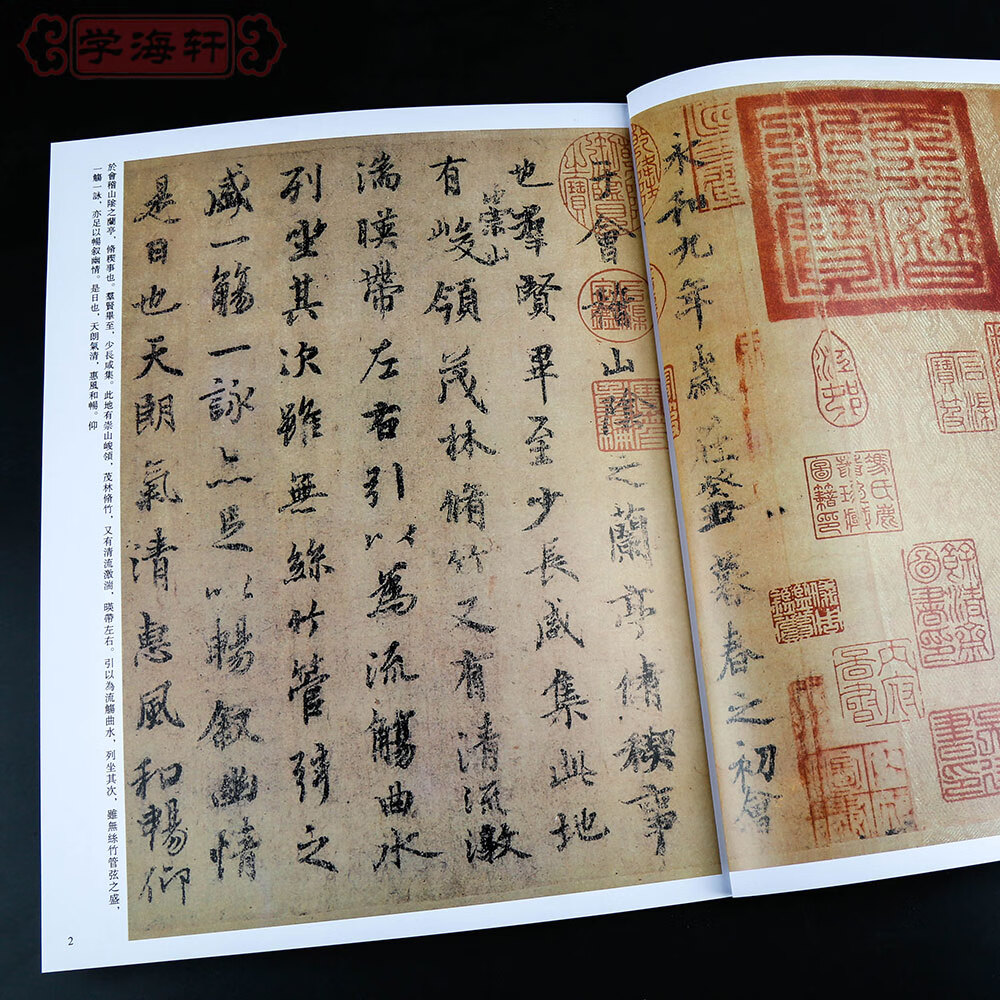 学海轩
永和九年歲在癸丑暮春之初會
于會稽山陰之蘭亭脩禊事
也羣賢畢至少長咸集此地
有崇山峻領茂林脩竹又有清流激
湍暎帶左右引以為流觴曲水
列坐其次雖無絲竹管弦之
盛一觴一詠亦足以暢叙幽情
是日也天朗氣清惠風和暢仰
於會稽山陰之蘭亭，脩禊事也。羣賢畢至，少長咸集。此地有崇山峻領，茂林脩竹，又有清流激湍，暎帶左右。引以為流觴曲水，列坐其次，雖無絲竹管弦之盛，
一觴一詠，亦足以暢叙幽情。是日也，天朗氣清，惠風和暢。仰
2